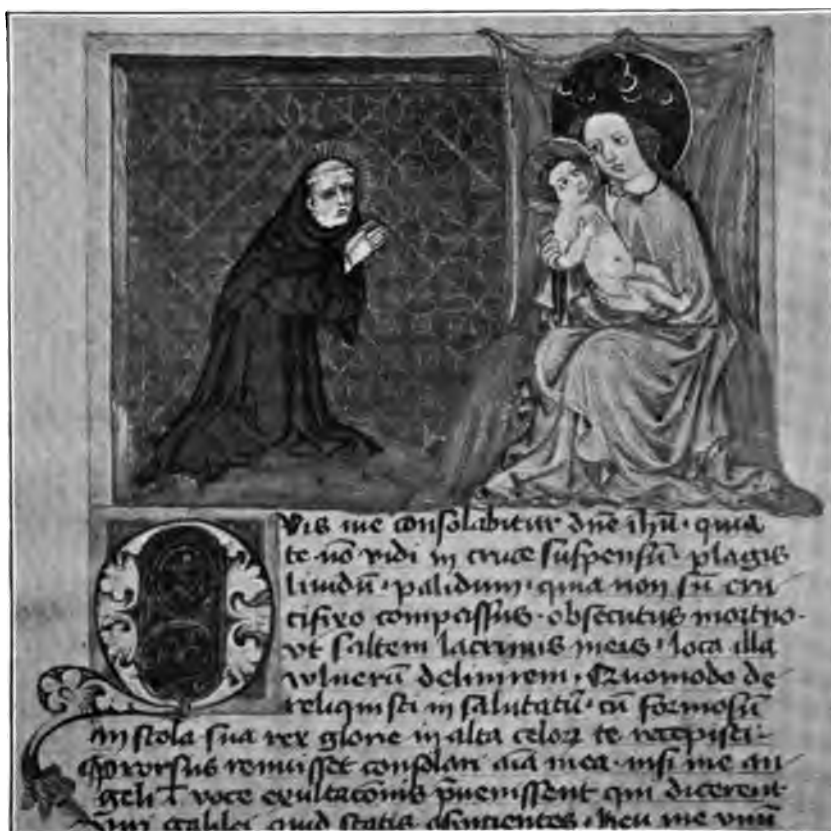 QVis me consolabitur dn̄e ih̄u · quia
te nō vidi in cruce suspensū plagis
liuidū · palidum · quia non sū cru
cifixo compassus · obsecutus mortuo ·
vt saltem lacrimis meis · loca illa
vulnerū delinirem · Quomodo de
reliquisti insalutatū · cū formosus
in stola sua rex glorie in alta celoꝝ te recepisti ·
Prorsus renuisset consolari aīa mea · nisi me an
geli voce exultacōnis p̄uenissent qui dicerent
Viri galilei quid statis aspicientes · heu me